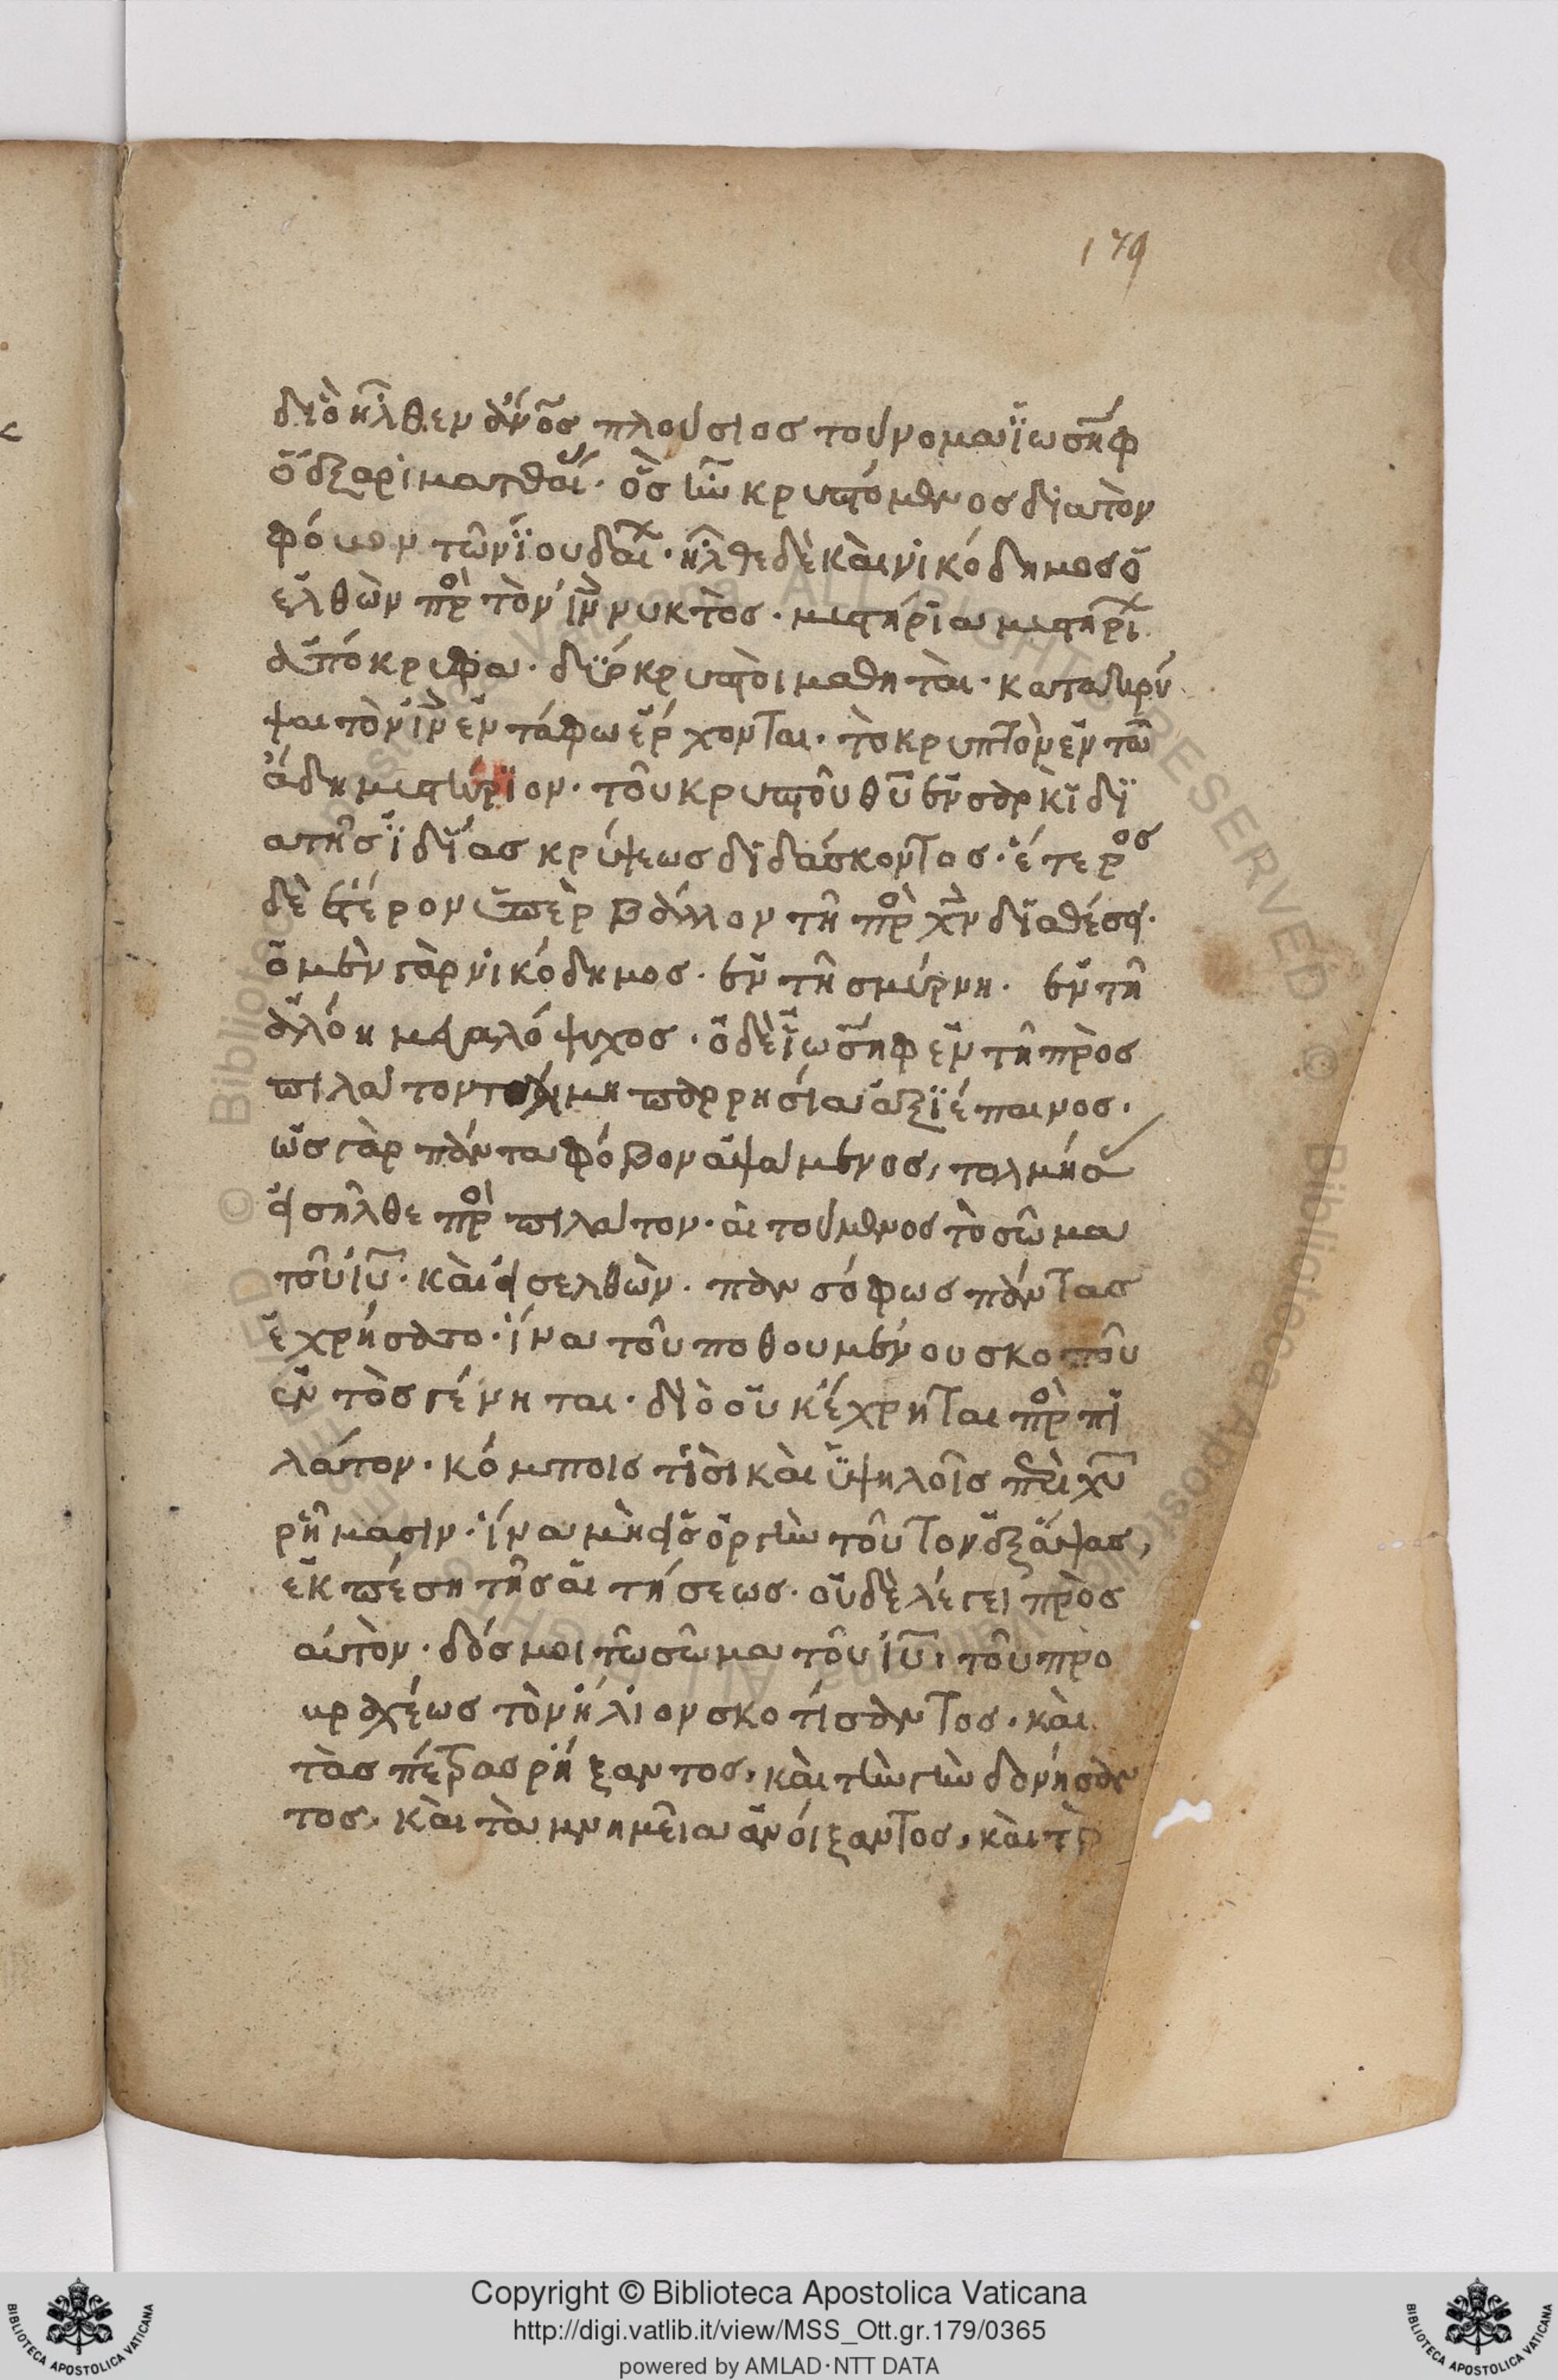 179
διὸ ἦλθεν ἄνος πλούσιος τοὔνομα ϊωσὴφ
ὁ ἐξ ἀριμαθαί· ὃς ἦν κρυπτόμενος διατὸν
φόβον τῶν ϊουδαί· ἦλθε δὲ καὶ νικόδημος ὁ
ἐλθὼν πρὸ τὸν ἰν νυκτὸς· μυστήρια μυστηρί
ἀπόκρυφα· δύο κρυπτοὶ μαθηταὶ· κατακρύ
ψαι τὸν ἰν ἐν τάφω ἔρχονται· τὸ κρυπτὸν ἐν τῶ
ἅδη μυστήριον· τοῦ κρυπτοῦ θυ ἐν σαρκὶ δϊ
ατῆς ϊδίας κρύψεως διδάσκοντος· ἕτερος
δὲ ἕτερον ὑπὲρ βάλλον τῆ πρὸ χν διαθέσει·
ὁ μὲν γὰρ νικόδημος· ἐν τῆ σμύρνη· ἐν τῆ
ἀλόη μεγαλόψυχος· ὁ δὲ ϊωσὴφ ἐν τῆ πρὸς
πιλάτον τόλμη παρρησία ἀξιέπαινος·
ὡς γὰρ πάντα φόβον ἀψάμενος, τολμήσα
εἰσῆλθε πρὸ πιλάτον· αἰτούμενος τὸ σῶμα
τοῦ ἰυ· καὶ εἰσελθὼν· πανσόφως πάντας
ἐχρήσατο· ἵνα τοῦ ποθουμένου σκοποῦ
ἐντὸς γένηται· διὸ οὐ κέχρηται πρὸ πι
λάτον· κόμποις τισὶ καὶ ὑψηλοῖς περὶ χυ
ρήμασιν· ἵνα μὴ εἰς ὀργὴν τοῦτον ἐξάψας,
ἐκπέση τῆς αἰτήσεως· οὐδὲ λέγει πρὸς
αὐτὸν· δός μοι τῶ σῶμα τοῦ ἰυ, τοῦ πρὸ
βραχέως τὸν ἥλιον σκοτίσαντος· καὶ
τὰς πέτρας ῥήξαντος, καὶ τὴν γὴν δονήσαν
τος, καὶ τὰ μνημεῖα ἀνοίξαντος, καὶ τὸ
Copyright © Biblioteca Apostolica Vaticana
http://digi.vatlib.it/view/MSS_Ott.gr.179/0365
powered by AMLAD·NTT DATA